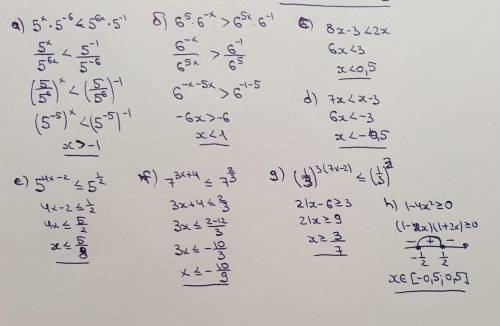 а) 5^x · 5^-6 ≤ 5^6x · 5^-1
5^x/5^6x < 5^-1/5^-6
(5/5^6)^x < (5/5^6)^-1
(5^-5)^x < (5^-5)^-1
x > -1
б) 6^5 · 6^-x > 6^5x · 6^-1
6^-x/6^5x > 6^-1/6^5
6^-x-5x > 6^-1-5
-6x > -6
x < 1
8x-3 < 2x
6x < 3
x < 0,5
d) 7x < x-3
6x < -3
x < -0,5
e) 5^4x-2 ≤ 5^1/2
4x-2 ≤ 1/2
4x ≤ 5/2
x ≤ 5/8
f) 7^3x+4 ≤ 7^2/3
3x+4 ≤ 2/3
3x ≤ 2-12/3
3x ≤ -10/3
x ≤ -10/9
g) (1/3)^3(7x-2) ≤ (1/3)^3
21x-6 ≥ 3
21x ≥ 9
x ≥ 3/7
h) 1-4x² ≥ 0
(1-2x)(1+2x) ≥ 0
- + -
-1/2 1/2
x ∈ [-0,5; 0,5]